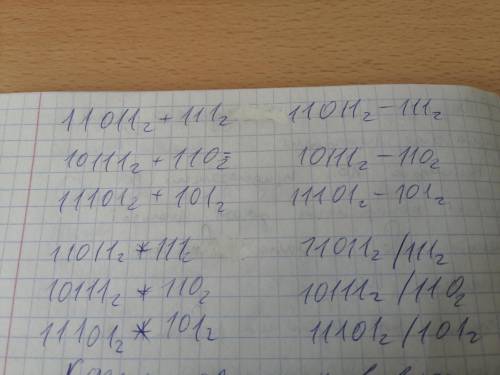 11011₂ + 111₂ 11011₂ - 111₂
10111₂ + 110₂ 10111₂ - 110₂
11101₂ + 101₂ 11101₂ - 101₂
11011₂ * 111₂ 11011₂ / 111₂
10111₂ * 110₂ 10111₂ / 110₂
11101₂ * 101₂ 11101₂ / 101₂